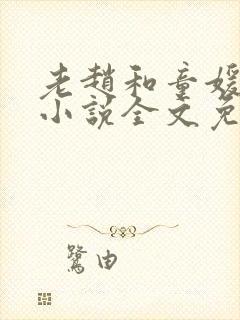 老趙和童媛
小說全文免
鷺由